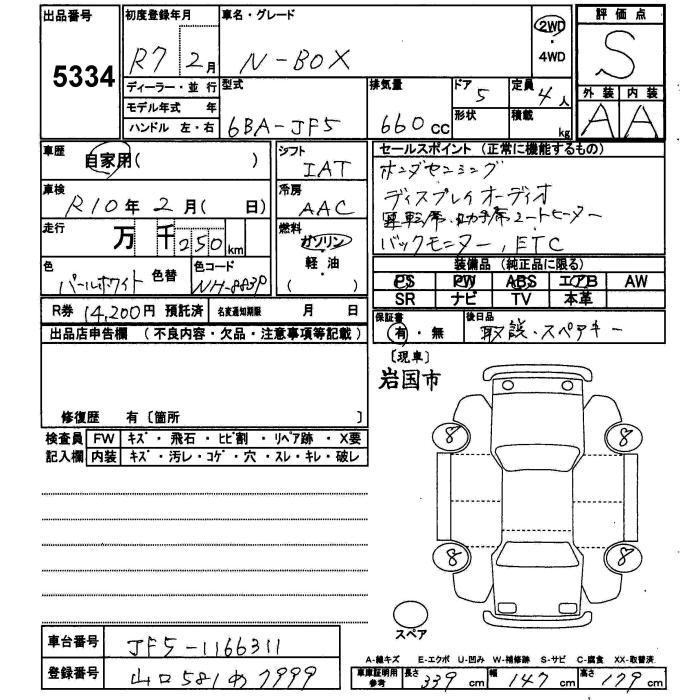 出品番号
5334
初度登録年月
R7 2月
車名・グレード
N-BOX
2WD
・
4WD
評価点
S
外装 内装
A A
ディーラー・並行
モデル年式 年
ハンドル 左・右
型式
6BA-JF5
排気量
660cc
ドア
5
形状
定員
4人
積載
kg
車歴
自家用( )
車検
R10年2月( 日)
走行
万 千 250 km
色
パールホワイト 色替
色コード
NH-883P
シフト
IAT
冷房
AAC
燃料
ガソリン
・
軽・油
( )
セールスポイント (正常に機能するもの)
ホンダセンシング
ディスプレイオーディオ
運転席・助手席シートヒーター
バックモニター, ETC
装備品 (純正品に限る)
PS PW ABS エアB AW
SR ナビ TV 本革
R券 14,200円 預託済
名変通知期限 月 日
保証書
有・無
後日品
取説・スペアキー
出品店申告欄 (不良内容・欠品・注意事項等記載)
修復歴 有〔箇所 〕
検査員
記入欄
FW キズ・飛石・ヒビ割・リペア跡・X要
内装 キズ・汚レ・コゲ・穴・スレ・キレ・破レ
〔現車〕
岩国市
8 8
8 8
スペア
車台番号
JF5-1166311
登録番号
山口 581 あ 7999
A-線キズ E-エクボ U-凹み W-補修跡 S-サビ C-腐食 XX-取替済
車庫証明用
参考
長さ 339 cm 幅 147 cm 高さ 179 cm